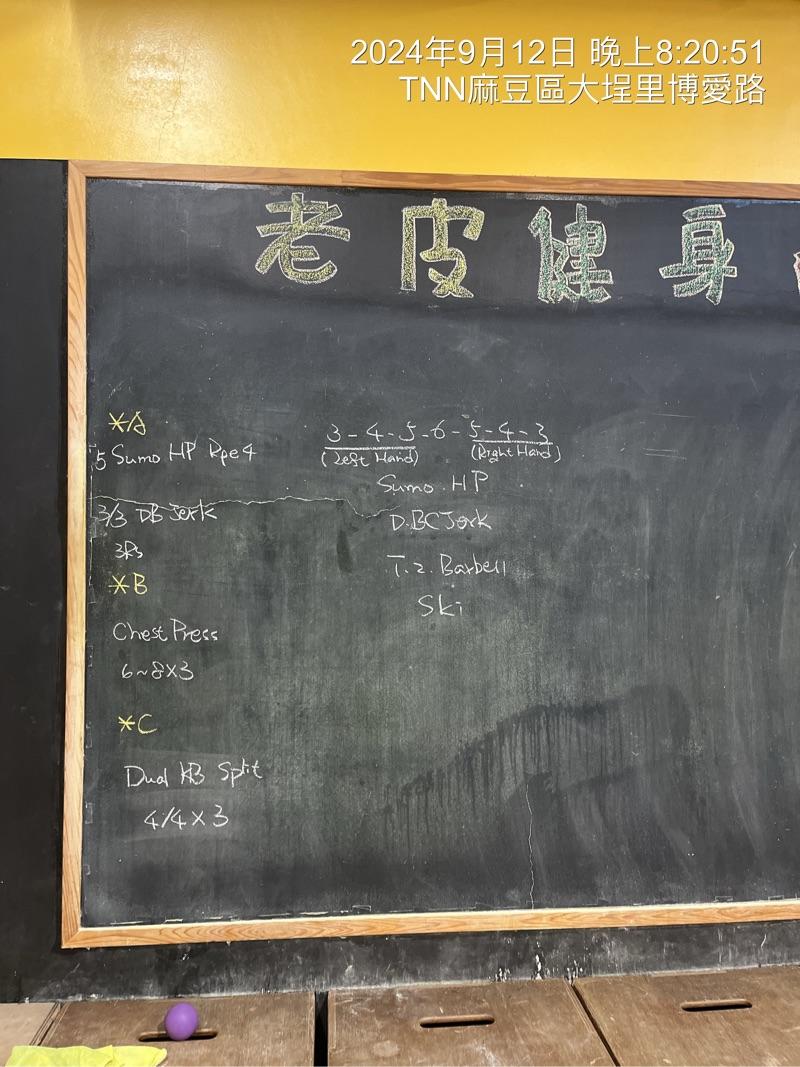 2024年9月12日 晚上8:20:51
TNN麻豆區大埕里博愛路
老皮健身
*A
5 Sumo HP Rpe4
3/3 DB Jerk
3Rs
*B
Chest Press
6~8X3
*C
Dual KB Split
4/4X3
3-4-5-6-5-4-3
(Left Hand) (Right Hand)
Sumo.HP
D.BCJerk
Barbell
Ski